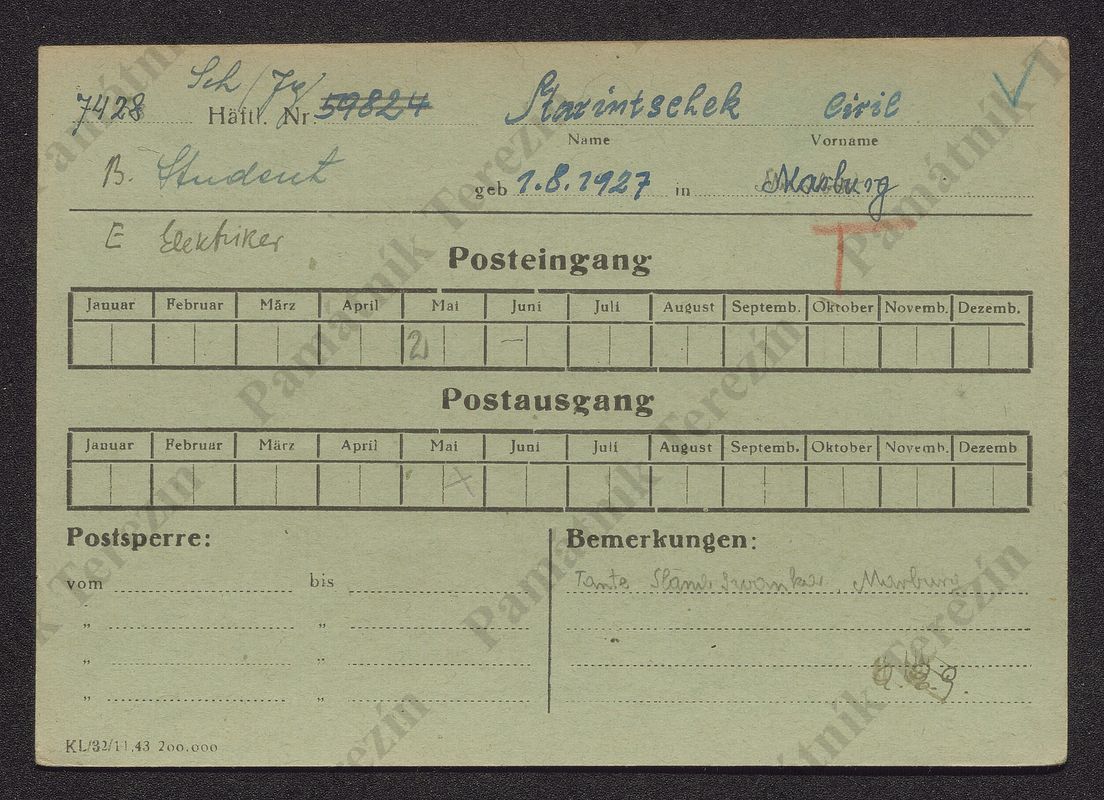 Sch / Jg /
7428 Häftl. Nr. 59824 Starintschek Ciril
Name Vorname
B. Student geb 1.8.1927 in Marburg
E Elektriker
T
Posteingang
Januar Februar März April Mai Juni Juli August Septemb. Oktober Novemb. Dezemb.
2 –
Postausgang
Januar Februar März April Mai Juni Juli August Septemb. Oktober Novemb. Dezemb
x
Postsperre: Bemerkungen:
vom bis Tante Marburg
„ „
„ „
„ „
KL/32/11.43 200.000
Památník Terezín